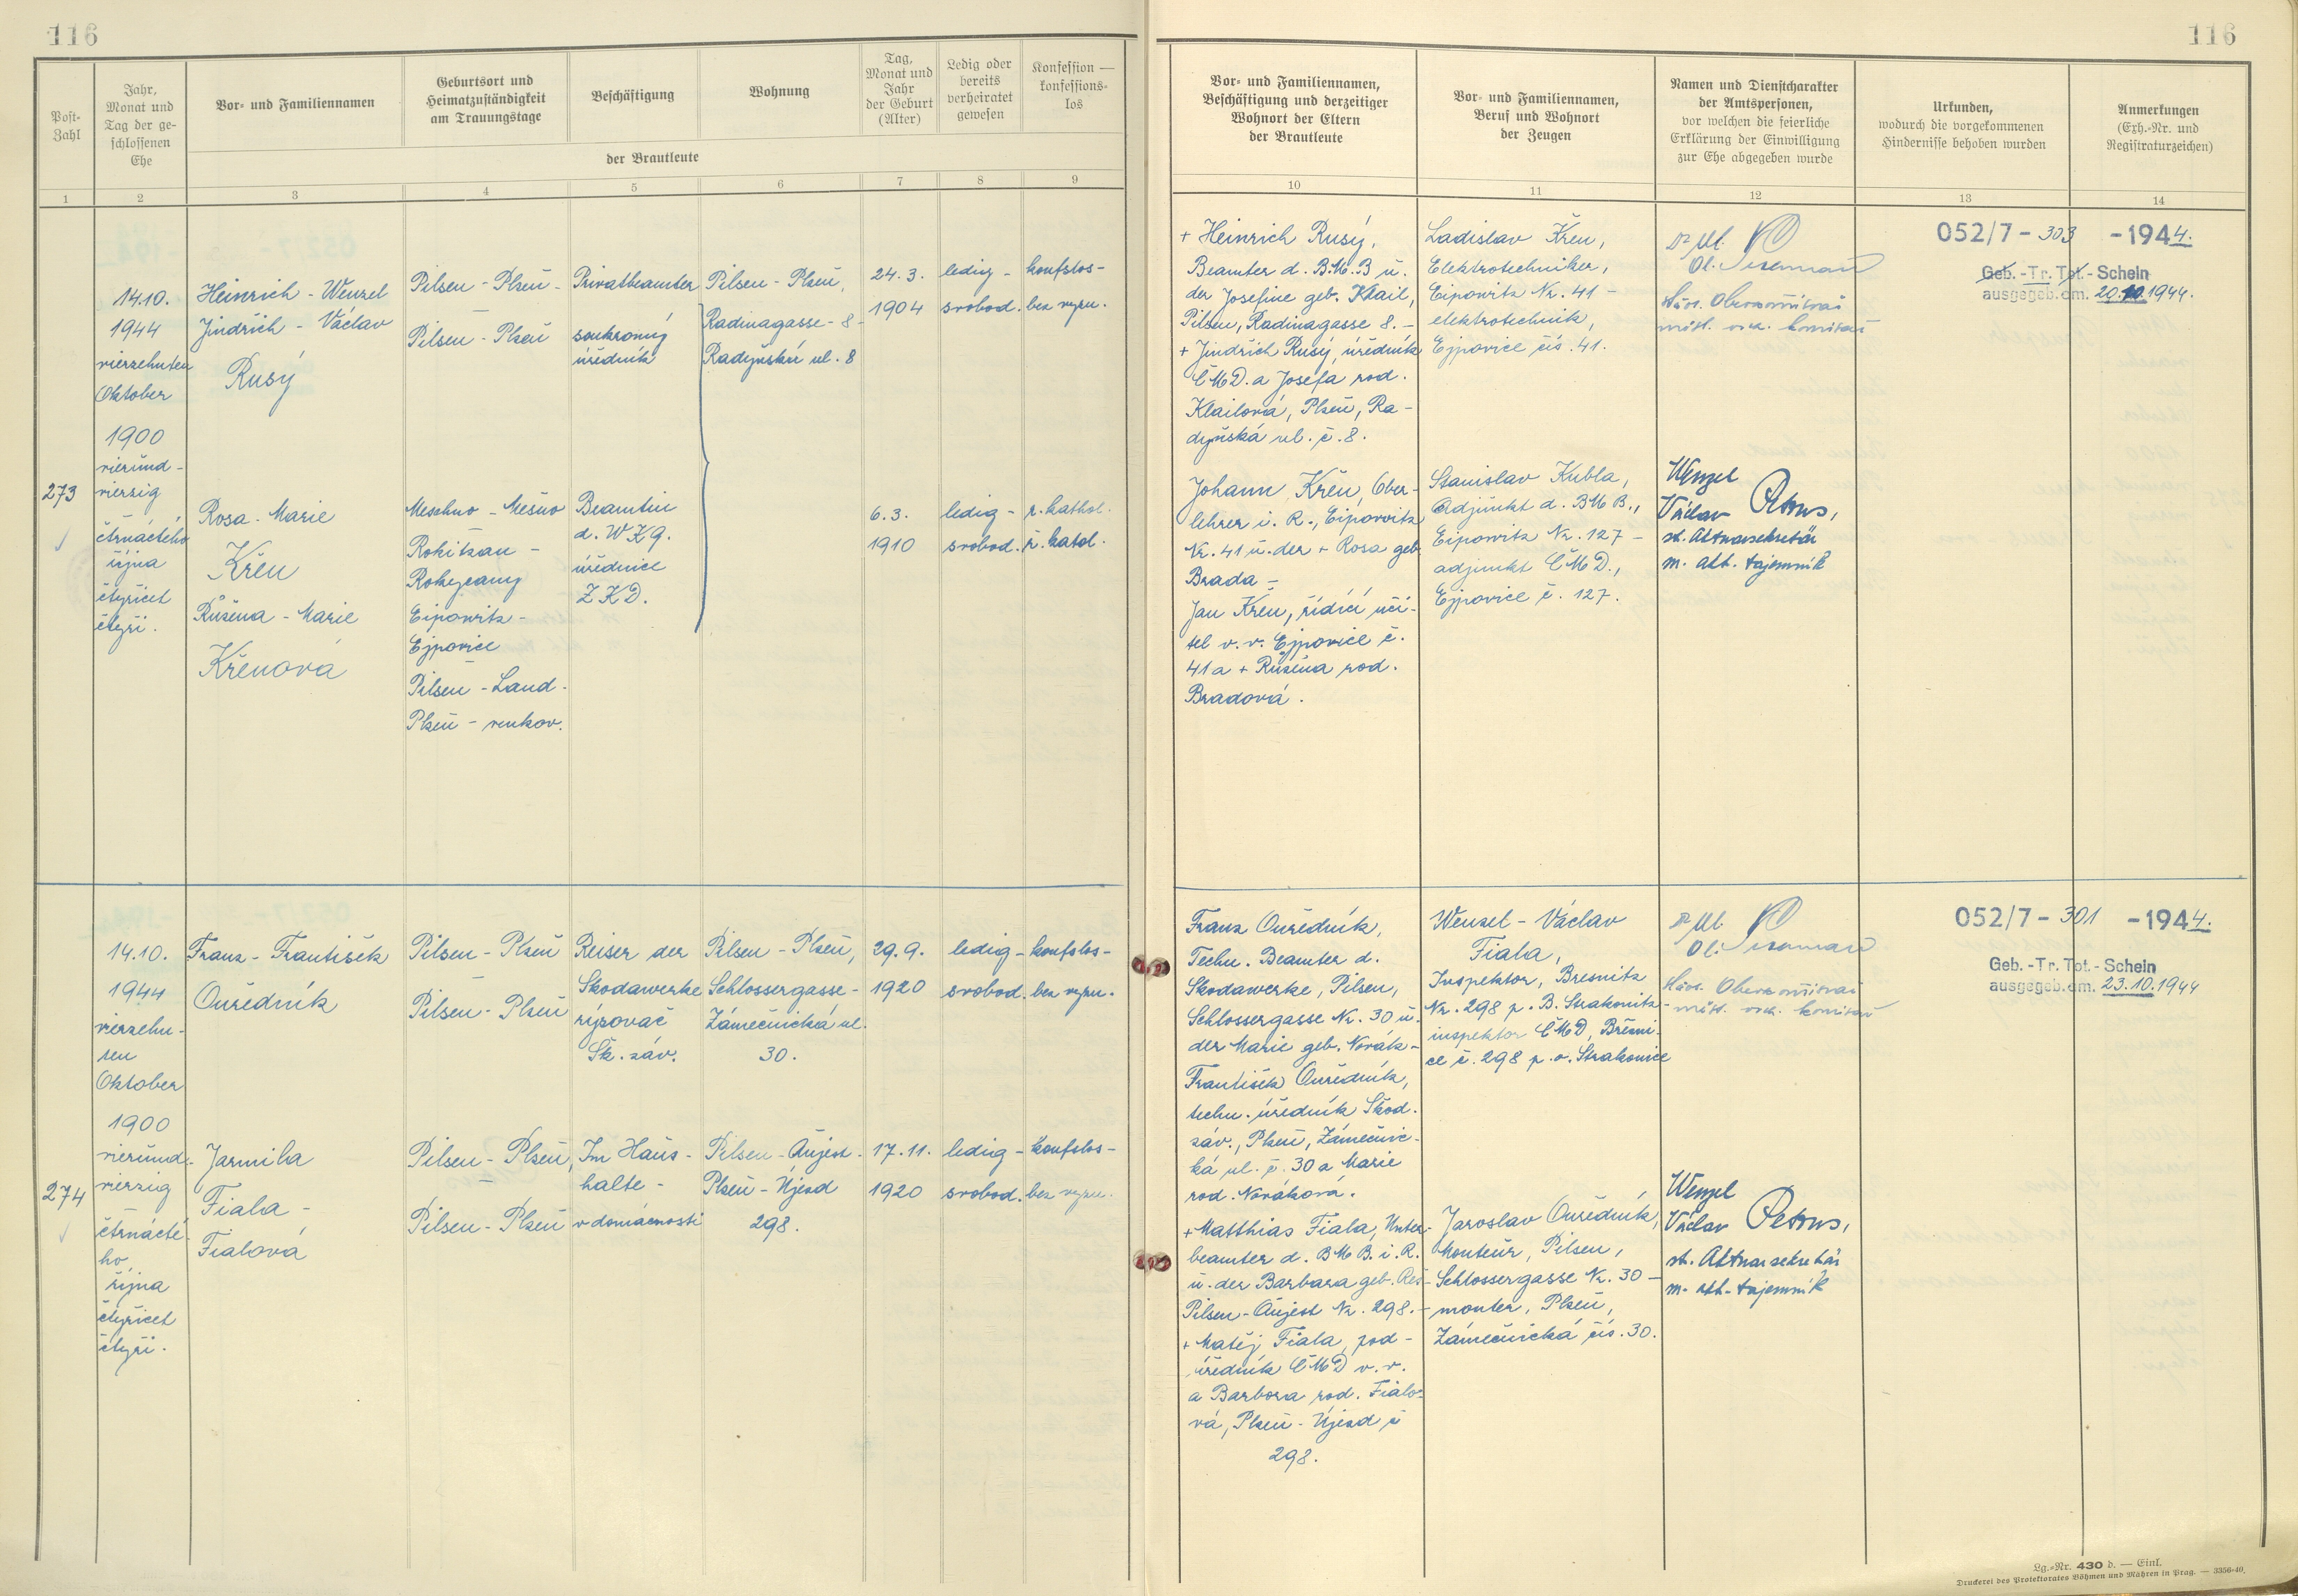 116
116
Post-
Zahl
Jahr,
Monat und
Tag der ge-
schlossenen
Ehe
Vor- und Familiennamen
Geburtsort und
Heimatzuständigkeit
am Trauungstage
Beschäftigung
Wohnung
Tag,
Monat und
Jahr
der Geburt
(Alter)
Ledig oder
bereits
verheiratet
gewesen
Konfession —
konfessions-
los
der Brautleute
Vor- und Familiennamen,
Beschäftigung und derzeitiger
Wohnort der Eltern
der Brautleute
Vor- und Familiennamen,
Beruf und Wohnort
der Zeugen
Namen und Dienstcharakter
der Amtspersonen,
vor welchen die feierliche
Erklärung der Einwilligung
zur Ehe abgegeben wurde
Urkunden,
wodurch die vorgekommenen
Hindernisse behoben wurden
Anmerkungen
(Exh.-Nr. und
Registraturzeichen)
1 2 3 4 5 6 7 8 9 10 11 12 13 14
273
14.10.
1944
vierzehnten
Oktober
1900
vierund-
vierzig
čtrnáctého
října
čtyřicet
čtyři.
Heinrich - Wenzel
Jindřich - Václav
Rusý
Pilsen - Plzeň -
Pilsen - Plzeň
Privatbeamter
soukromý
úředník
Pilsen - Plzeň,
Radinagasse - 8 -
Radyňská ul. 8
24.3.
1904
ledig -
svobod.
konfslos -
bez vyzn.
Rosa - Marie
Křen
Růžena - Marie
Křenová
Meschno - Mešno
Rokitzan -
Rokycany
Eipowitz -
Ejpovice
Pilsen - Land -
Plzeň - venkov.
Beamtin
d. WKG.
úřednice
ZKD.
6.3.
1910
ledig -
svobod.
r. kathol.
ř. katol.
+ Heinrich Rusý,
Beamter d. B.M.B u.
der Josefine geb. Klail,
Pilsen, Radinagasse 8. -
+ Jindřich Rusý, úředník
ČMD. a Josefa rod.
Klailová, Plzeň, Ra-
dyňská ul. č. 8.
Johann Křen, Ober-
lehrer i. R., Eipowitz
Nr. 41 u. der + Rosa geb.
Brada -
Jan Křen, řídící uči-
tel v. v. Ejpovice č.
41 a + Růžena rod.
Bradová.
Ladislav Křen,
Elektrotechniker,
Eipowitz Nr. 41 -
elektrotechnik,
Ejpovice čís. 41.
Stanislav Kubla,
Adjunkt d. BMB.,
Eipowitz Nr. 127 -
adjunkt ČMD.,
Ejpovice č. 127.
Wenzel
Václav Petrus,
st. Aktuarsekretär
m. akt. tajemník
052/7 - 303 - 1944.
Geb. - Tr. Tot. - Schein
ausgegeb. am. 20.10.1944.
274
14.10.
1944
vierzehn-
ten
Oktober
1900
vierund-
vierzig
čtrnácté-
ho
října
čtyřicet
čtyři.
Franz - František
Ouředník
Pilsen - Plzeň
Pilsen - Plzeň
Reiser der
Skodawerke
rýsovač
Šk. záv.
Pilsen - Plzeň,
Schlossergasse -
Zámečnická ul.
30.
29.9.
1920
ledig -
svobod.
konfslos -
bez vyzn.
Jarmila
Fiala -
Fialová
Pilsen - Plzeň,
Pilsen - Plzeň
Im Haus-
halte -
v domácnosti
Pilsen - Aujest -
Plzeň - Újezd
298.
17.11.
1920
ledig -
svobod.
konfslos -
bez vyzn.
Franz Ouředník,
Techn. Beamter d.
Skodawerke, Pilsen,
Schlossergasse Nr. 30 u.
der Marie geb. Novák -
František Ouředník,
techn. úředník Škod.
záv., Plzeň, Zámečnic-
ká ul. č. 30 a Marie
rod. Nováková.
+ Matthias Fiala, Unter-
beamter d. BMB. i. R.
u. der Barbara geb.
Pilsen - Aujest Nr. 298. -
+ Matěj Fiala, pod-
úředník ČMD v. v.
a Barbora rod. Fialo-
vá, Plzeň - Újezd č
298.
Wenzel - Václav
Fiala,
Inspektor, Bresnitz
Nr. 298 p. B. Strakonitz -
inspektor ČMD, Březni-
ce č. 298 p. o. Strakonice
Jaroslav Ouředník,
Monteur, Pilsen,
Schlossergasse Nr. 30 -
montér, Plzeň,
Zámečnická čís. 30.
Wenzel
Václav Petrus,
st. Aktuarsekretär
m. akt. tajemník
052/7 - 301 - 1944.
Geb. - Tr. Tot. - Schein
ausgegeb. am. 23.10.1944
Lg.-Nr. 430 d. — Einl.
Druckerei des Protektorates Böhmen und Mähren in Prag. — 3356-40.